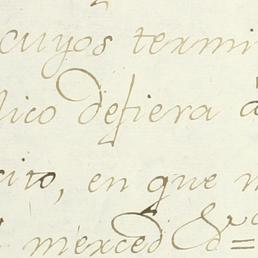 cuyos termi
lico defiera a
cito, en que m
merced &ra=